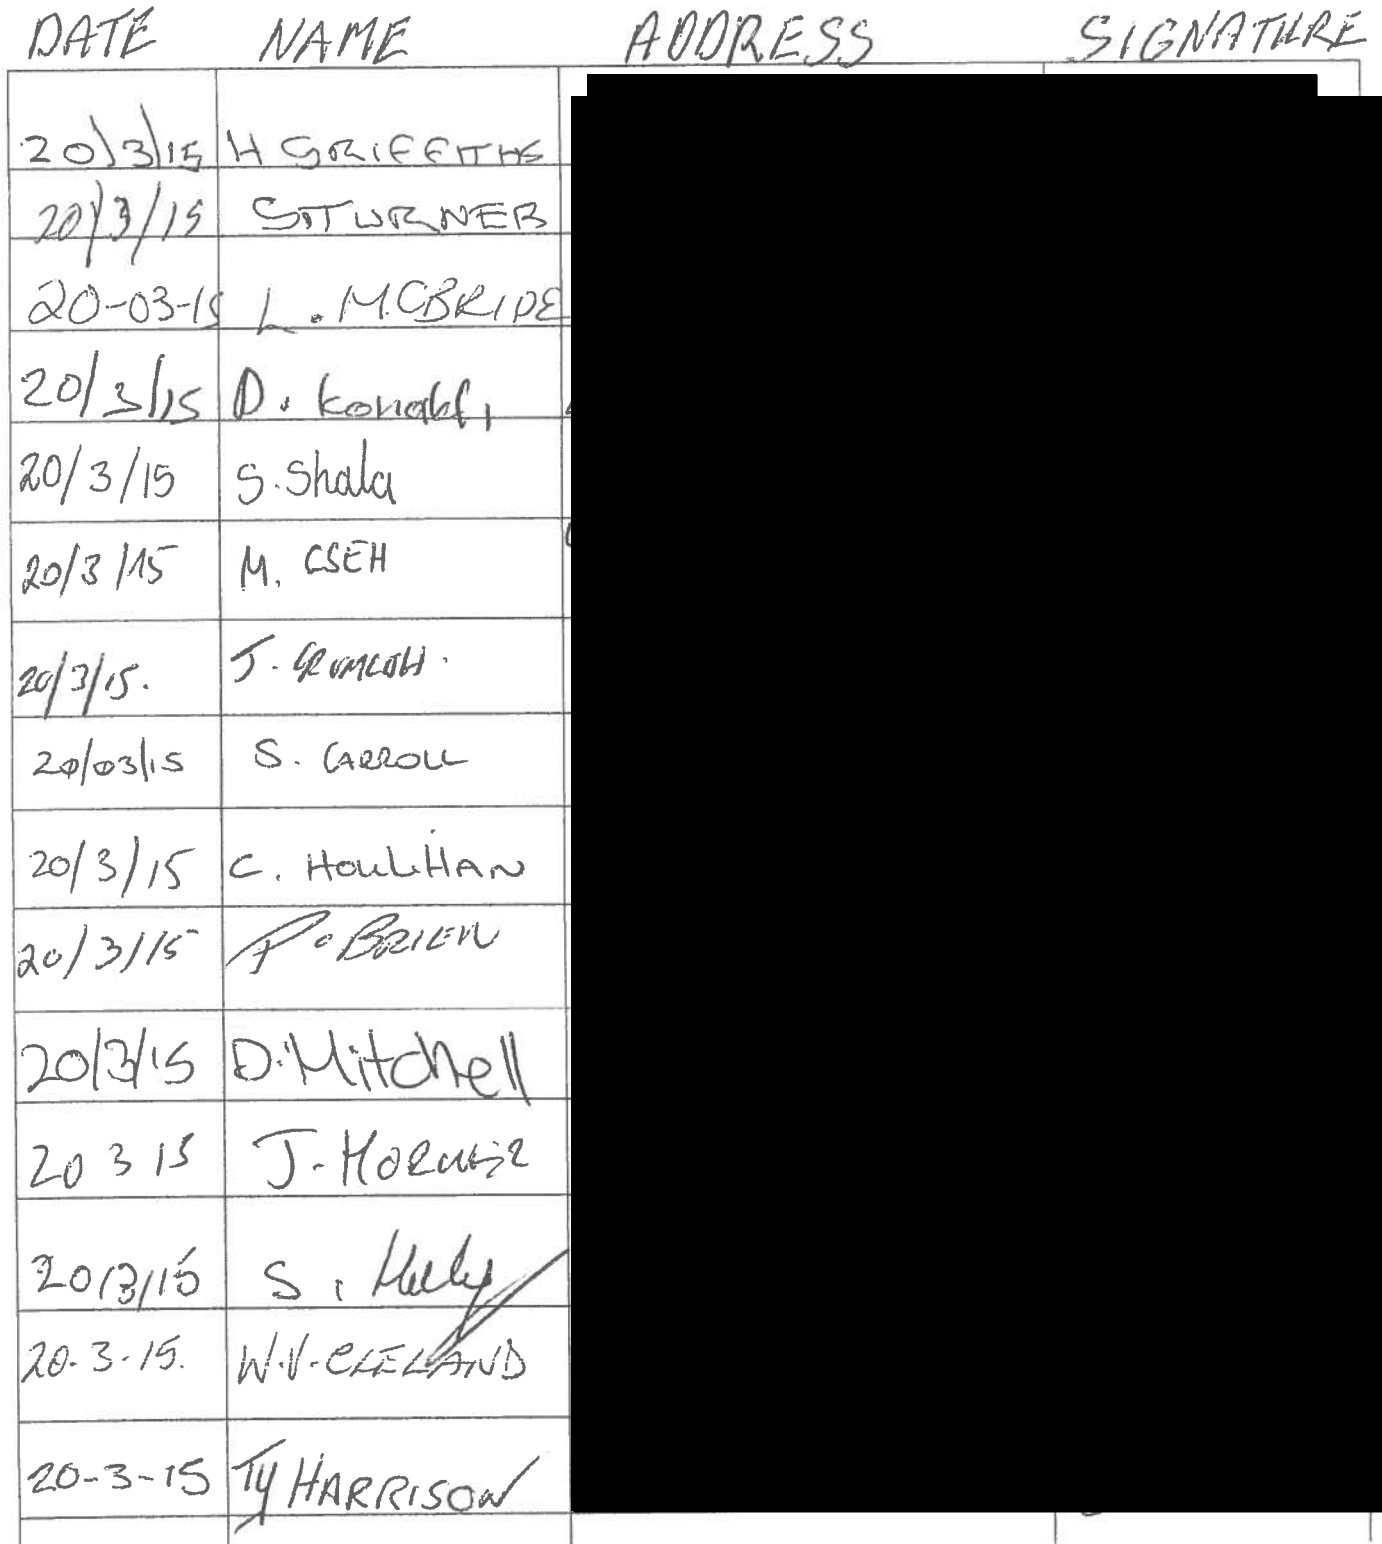 DATE NAME ADDRESS SIGNATURE
20/3/15 H GRIFFITHS
20/3/15 S TURNER
20-03-15 L. MCBRIDE
20/3/15 D.
20/3/15 S. Shala
20/3/15 M. CSEH
20/3/15. J.
20/03/15 S. CARROLL
20/3/15 C. HOULIHAN
20/3/15 P. O'BRIEN
20/3/15 D. Mitchell
20 3 15 J.
20/3/15 S.
20.3.15. W.V. CLELAND
20-3-15 TY HARRISON